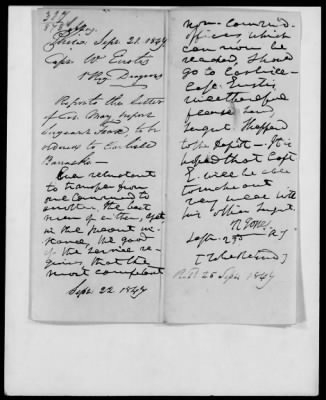 Phila. Sept. 21. 1847
Capt. W. Eustis
1 Reg. Dragoons
Reports the letter
of Col. May, report
Sergeant to be
ordered to Carlisle
Barracks—
Ever reluctant
to transfer from
one command to
another the best
men of either, yet
in the present in-
stance, the good
of the service re-
quires, that the
most competent
Sept. 22. 1847
non-commd.
officer, which
can now be
reached, should
go to Carlisle—
Capt. Eustis,
will therefore
please send
Sergt. Sheppard
to the Depot— It is
hoped that Capt
E. will be able
to make out
very well with
his other Sergt.
R. Jones,
Sept. 23d
[To be Retd]
Rd 25 Sept. 1847